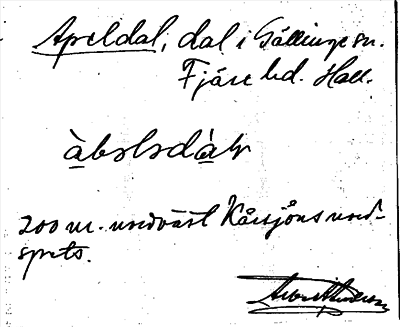 Apeldal, dal i Gällinge sn.
Fjäre hd. Hall.
àbəlsdàlr
200 m. nordväst Kårsjöns nord-
spets.